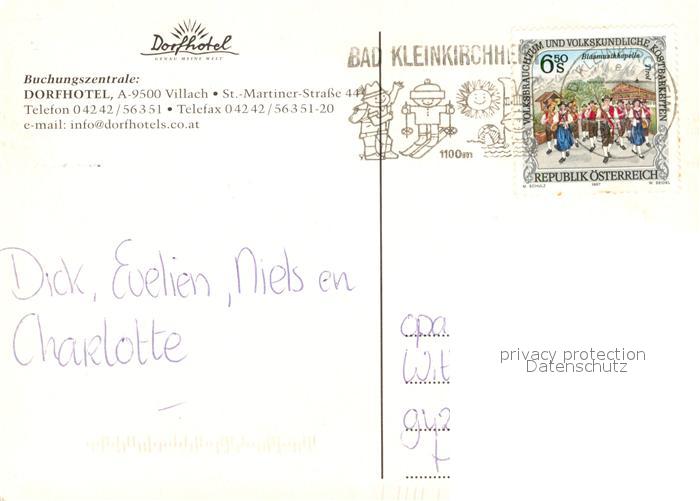 Dorfhotel
GENAU MEINE WELT
Buchungszentrale:
DORFHOTEL, A-9500 Villach • St.-Martiner-Straße 44
Telefon 0 42 42 / 563 51 • Telefax 0 42 42 / 563 51-20
e-mail: info@dorfhotels.co.at
BAD KLEINKIRCHHE
1100 m
6,50 S
VOLKSBRAUCHTUM UND VOLKSKUNDLICHE KOSTBARKEITEN
Blasmusikkapelle
Tirol
REPUBLIK ÖSTERREICH
M. SCHULZ 1997 W. SEIDEL
Dick, Evelien, Niels en
Charlotte
opa
Wit
privacy protection
Datenschutz